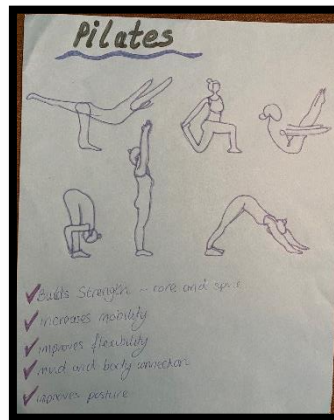 Pilates
Builds Strength - core and spine
increases mobility
improves flexibility
mind and body connection
improves posture